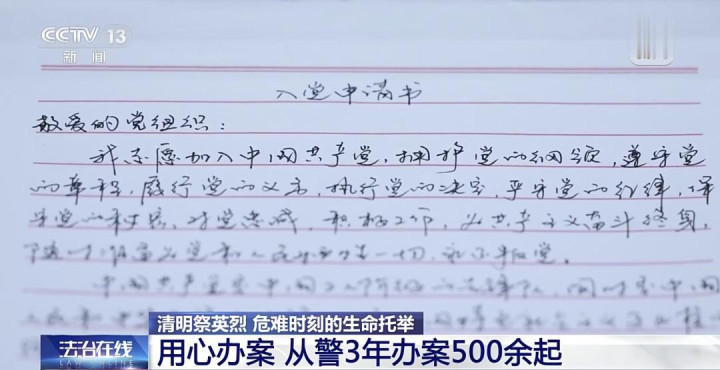 CCTV 13
新闻
入党申请书
敬爱的党组织：
我志愿加入中国共产党，拥护党的纲领，遵守党
的章程，履行党的义务，执行党的决定，严守党的纪律，保
守党的秘密，对党忠诚，积极工作，为共产主义奋斗终身，
随时准备为党和人民牺牲一切，永不叛党。
中国共产党是中国工人阶级的先锋队，同时是中国
清明祭英烈 危难时刻的生命托举
法治在线
用心办案 从警3年办案500余起